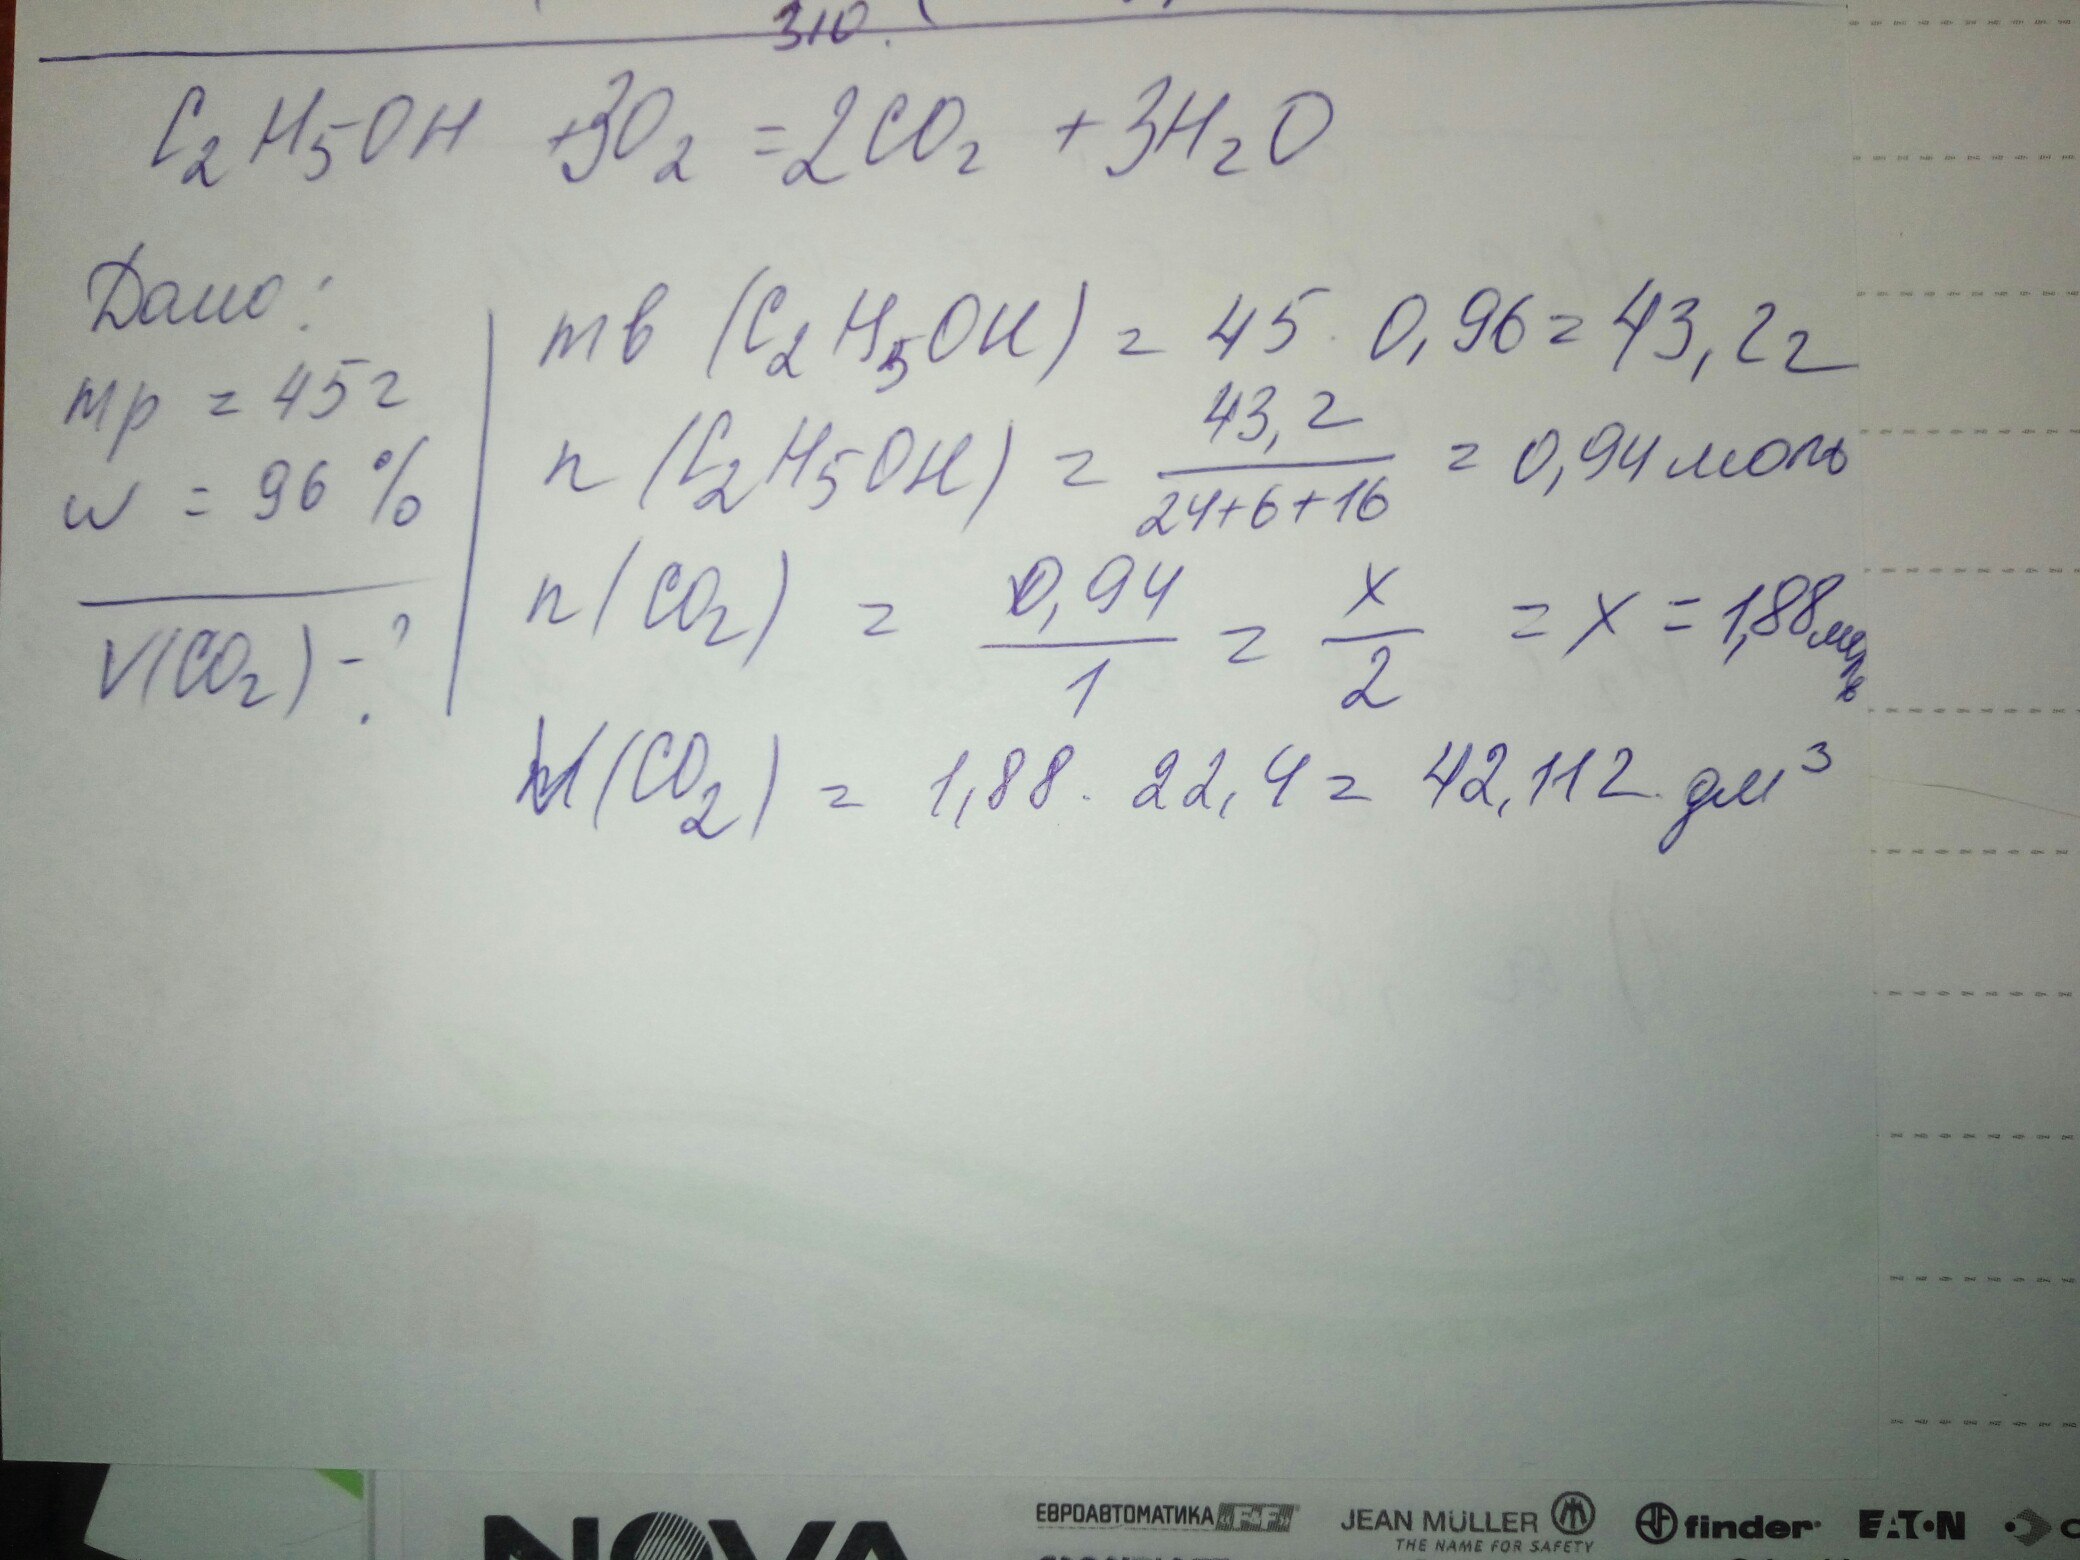 310.
C₂H₅OH +3O₂ =2CO₂ +3H₂O
Дано:
mр = 45г
w = 96 %
V(CO₂) - ?
mв (C₂H₅OH) = 45 · 0,96 = 43,2г
n (C₂H₅OH) = 43,2 / 24+6+16 = 0,94 моль
n (CO₂) = 0,94 / 1 = x / 2 = x = 1,88 моль
V(CO₂) = 1,88 · 22,4 = 42,112 дм³
NOVA
ЕВРОАВТОМАТИКА F&F
JEAN MÜLLER
THE NAME FOR SAFETY
finder
EATON